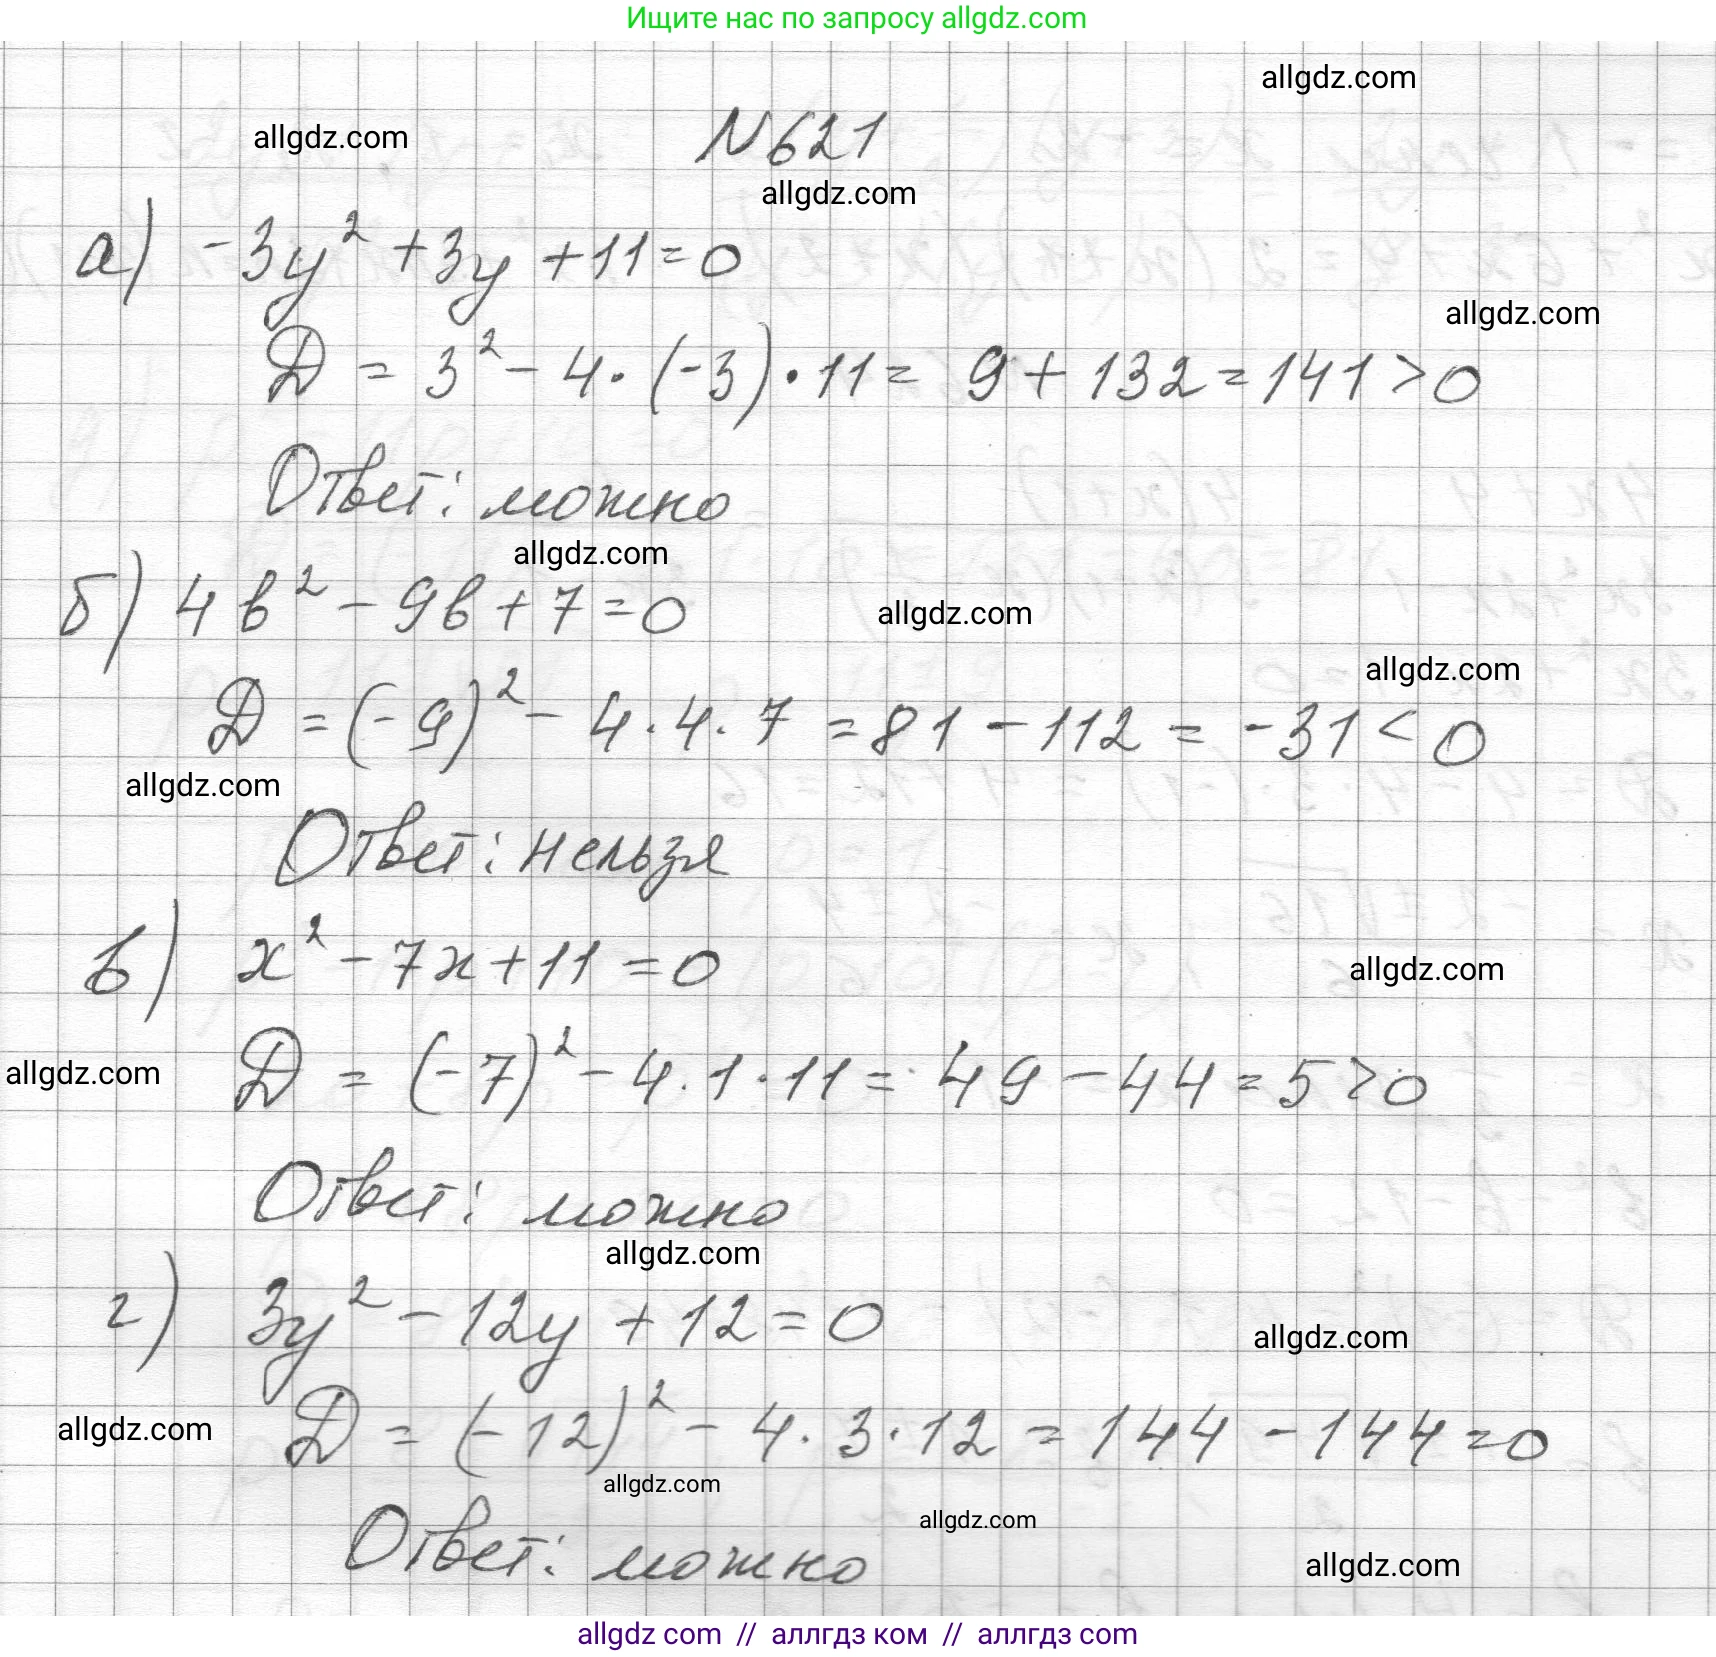 Ищите нас по запросу allgdz.com
allgdz.com
allgdz.com
N 621
allgdz.com
а) -3y² + 3y + 11 = 0
allgdz.com
D = 3² - 4 · (-3) · 11 = 9 + 132 = 141 > 0
Ответ: можно
allgdz.com
б) 4b² - 9b + 7 = 0
allgdz.com
allgdz.com
D = (-9)² - 4 · 4 · 7 = 81 - 112 = -31 < 0
allgdz.com
Ответ: нельзя
в) x² - 7x + 11 = 0
allgdz.com
allgdz.com
D = (-7)² - 4 · 1 · 11 = 49 - 44 = 5 > 0
Ответ: можно
allgdz.com
г) 3y² - 12y + 12 = 0
allgdz.com
allgdz.com
D = (-12)² - 4 · 3 · 12 = 144 - 144 = 0
allgdz.com
allgdz.com
Ответ: можно
allgdz.com
allgdz com // аллгдз ком // аллгдз com